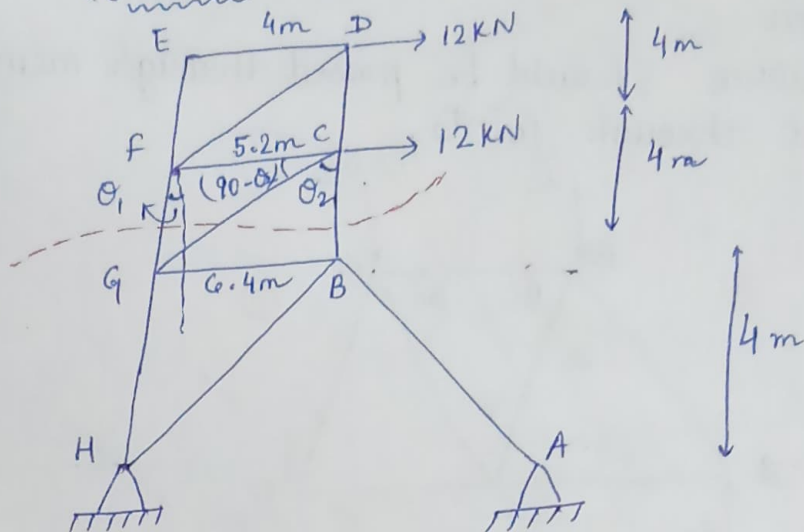 E 4m D 12KN 4m
F 5.2m C 12KN 4m
θ1 (90-θ2) θ2
G 6.4m B
4m
H A